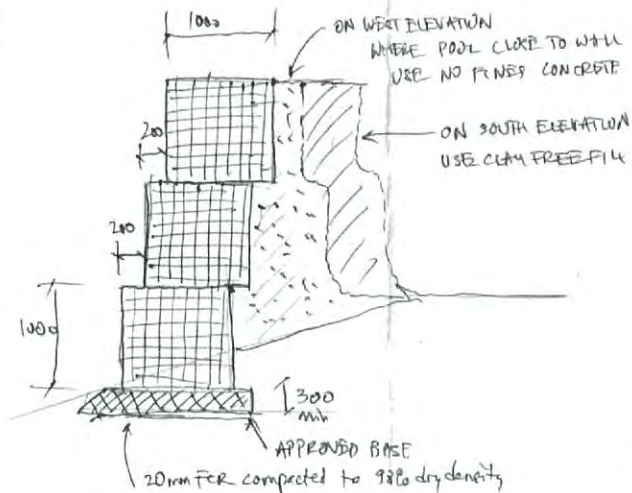 1000
ON WEST ELEVATION
WHERE POOL CLOSE TO WALL
USE NO FINES CONCRETE
200
ON SOUTH ELEVATION
USE CLAY FREE FILL
200
1000
300
min
APPROVED BASE
20mm FCR compacted to 98% dry density